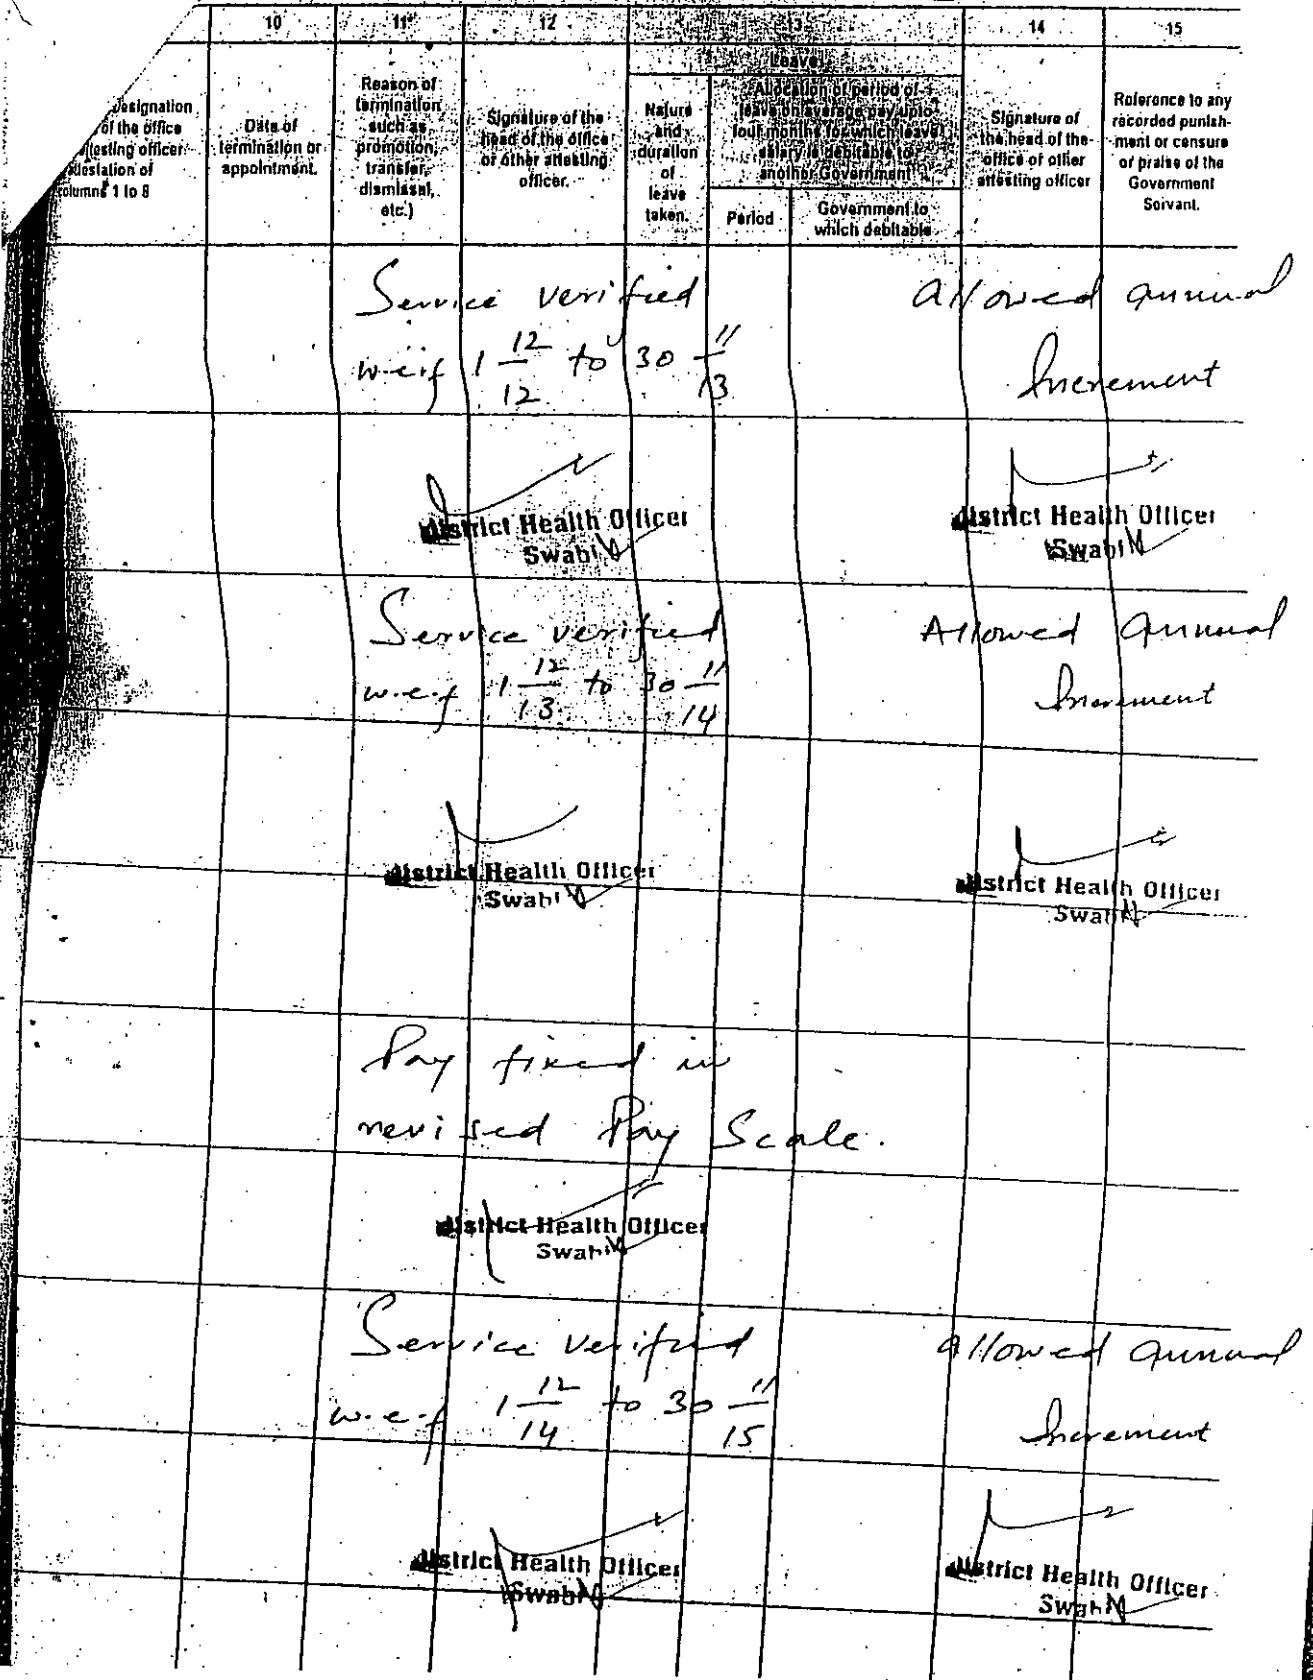 10 11 12 13 14 15
Leave
Designation
of the office
attesting officer
attestation of
columns 1 to 8
Date of
termination or
appointment.
Reason of
termination
such as
promotion,
transfer,
dismissal,
etc.)
Signature of the
head of the office
or other attesting
officer.
Nature
and
duration
of
leave
taken.
Allocation of period of
leave on average pay upto
four months for which leave
salary is debitable to
another Government
Period
Government to
which debitable
Signature of
the head of the
office of other
attesting officer
Reference to any
recorded punish-
ment or censure
or praise of the
Government
Servant.
Service verified
w.e.f 1 12/12 to 30 11/13
Allowed annual
Increment
District Health Officer
Swabi
District Health Officer
Swabi
Service verified
w.e.f 1 12/13 to 30 11/14
Allowed annual
Increment
District Health Officer
Swabi
District Health Officer
Swabi
Pay fixed in
revised Pay Scale.
District Health Officer
Swabi
Service verified
w.e.f 1 12/14 to 30 11/15
allowed annual
Increment
District Health Officer
Swabi
District Health Officer
Swabi